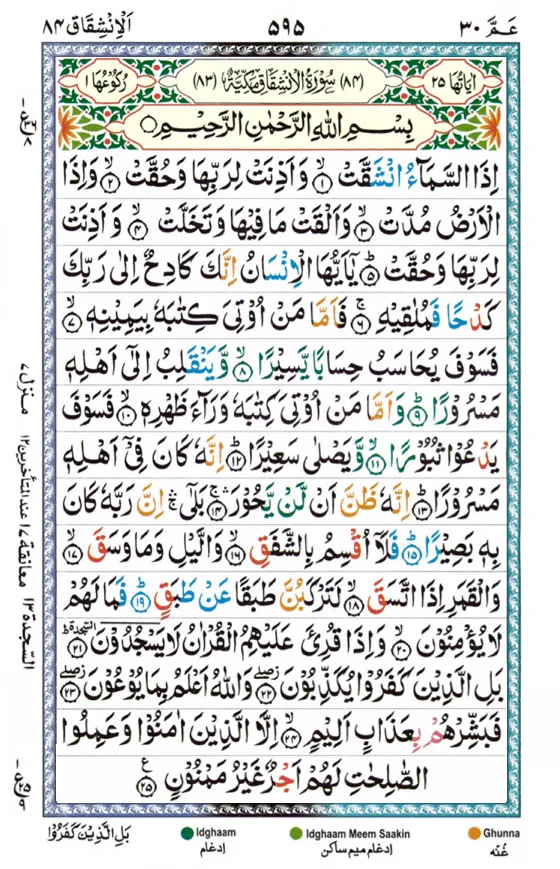 عَمَّ ٣٠
٥٩٥
اَلْاِنْشِقَاق ٨٤
اٰيَاتُهَا ٢٥
(٨٤) سُوْرَةُ الْاِنْشِقَاقِ مَكِّيَّةٌ (٨٣)
رُكُوْعُهَا ١
بِسْمِ اللّٰهِ الرَّحْمٰنِ الرَّحِيْمِ
اِذَا السَّمَآءُ انْشَقَّتْ ۙ﴿۱﴾ وَاَذِنَتْ لِرَبِّهَا وَحُقَّتْ ۙ﴿۲﴾ وَاِذَا
الْاَرْضُ مُدَّتْ ۙ﴿۳﴾ وَاَلْقَتْ مَا فِيْهَا وَتَخَلَّتْ ۙ﴿۴﴾ وَاَذِنَتْ
لِرَبِّهَا وَحُقَّتْ ؕ﴿۵﴾ يٰۤاَيُّهَا الْاِنْسَانُ اِنَّكَ كَادِحٌ اِلٰى رَبِّكَ
كَدْحًا فَمُلٰقِيْهِ ۚ﴿۶﴾ فَاَمَّا مَنْ اُوْتِيَ كِتٰبَهٗ بِيَمِيْنِهٖ ۙ﴿۷﴾
فَسَوْفَ يُحَاسَبُ حِسَابًا يَّسِيْرًا ۙ﴿۸﴾ وَّيَنْقَلِبُ اِلٰٓى اَهْلِهٖ
مَسْرُوْرًا ؕ﴿۹﴾ وَاَمَّا مَنْ اُوْتِيَ كِتٰبَهٗ وَرَآءَ ظَهْرِهٖ ۙ﴿۱۰﴾ فَسَوْفَ
يَدْعُوْا ثُبُوْرًا ۙ﴿۱۱﴾ وَّيَصْلٰى سَعِيْرًا ؕ﴿۱۲﴾ اِنَّهٗ كَانَ فِيْٓ اَهْلِهٖ
مَسْرُوْرًا ؕ﴿۱۳﴾ اِنَّهٗ ظَنَّ اَنْ لَّنْ يَّحُوْرَ ۚ﴿۱۴﴾ بَلٰٓى ۚ اِنَّ رَبَّهٗ كَانَ
بِهٖ بَصِيْرًا ؕ﴿۱۵﴾ فَلَآ اُقْسِمُ بِالشَّفَقِ ۙ﴿۱۶﴾ وَالَّيْلِ وَمَا وَسَقَ ۙ﴿۱۷﴾
وَالْقَمَرِ اِذَا اتَّسَقَ ۙ﴿۱۸﴾ لَتَرْكَبُنَّ طَبَقًا عَنْ طَبَقٍ ؕ﴿۱۹﴾ فَمَا لَهُمْ
لَا يُؤْمِنُوْنَ ۙ﴿۲۰﴾ وَاِذَا قُرِئَ عَلَيْهِمُ الْقُرْاٰنُ لَا يَسْجُدُوْنَ ؕ﴿۲۱﴾ السجدة
بَلِ الَّذِيْنَ كَفَرُوْا يُكَذِّبُوْنَ ۖ﴿۲۲﴾ وَاللّٰهُ اَعْلَمُ بِمَا يُوْعُوْنَ ۖ﴿۲۳﴾
فَبَشِّرْهُمْ بِعَذَابٍ اَلِيْمٍ ۙ﴿۲۴﴾ اِلَّا الَّذِيْنَ اٰمَنُوْا وَعَمِلُوا
الصّٰلِحٰتِ لَهُمْ اَجْرٌ غَيْرُ مَمْنُوْنٍ ﴿۲۵﴾ ع
منزل ٧
معانقة ١٧ عند المتأخرين ١٢
السّجدة ١٣
بَلِ الَّذِيْنَ كَفَرُوْا
Idghaam
اِدغام
Idghaam Meem Saakin
اِدغام ميم ساكن
Ghunna
غُنّه